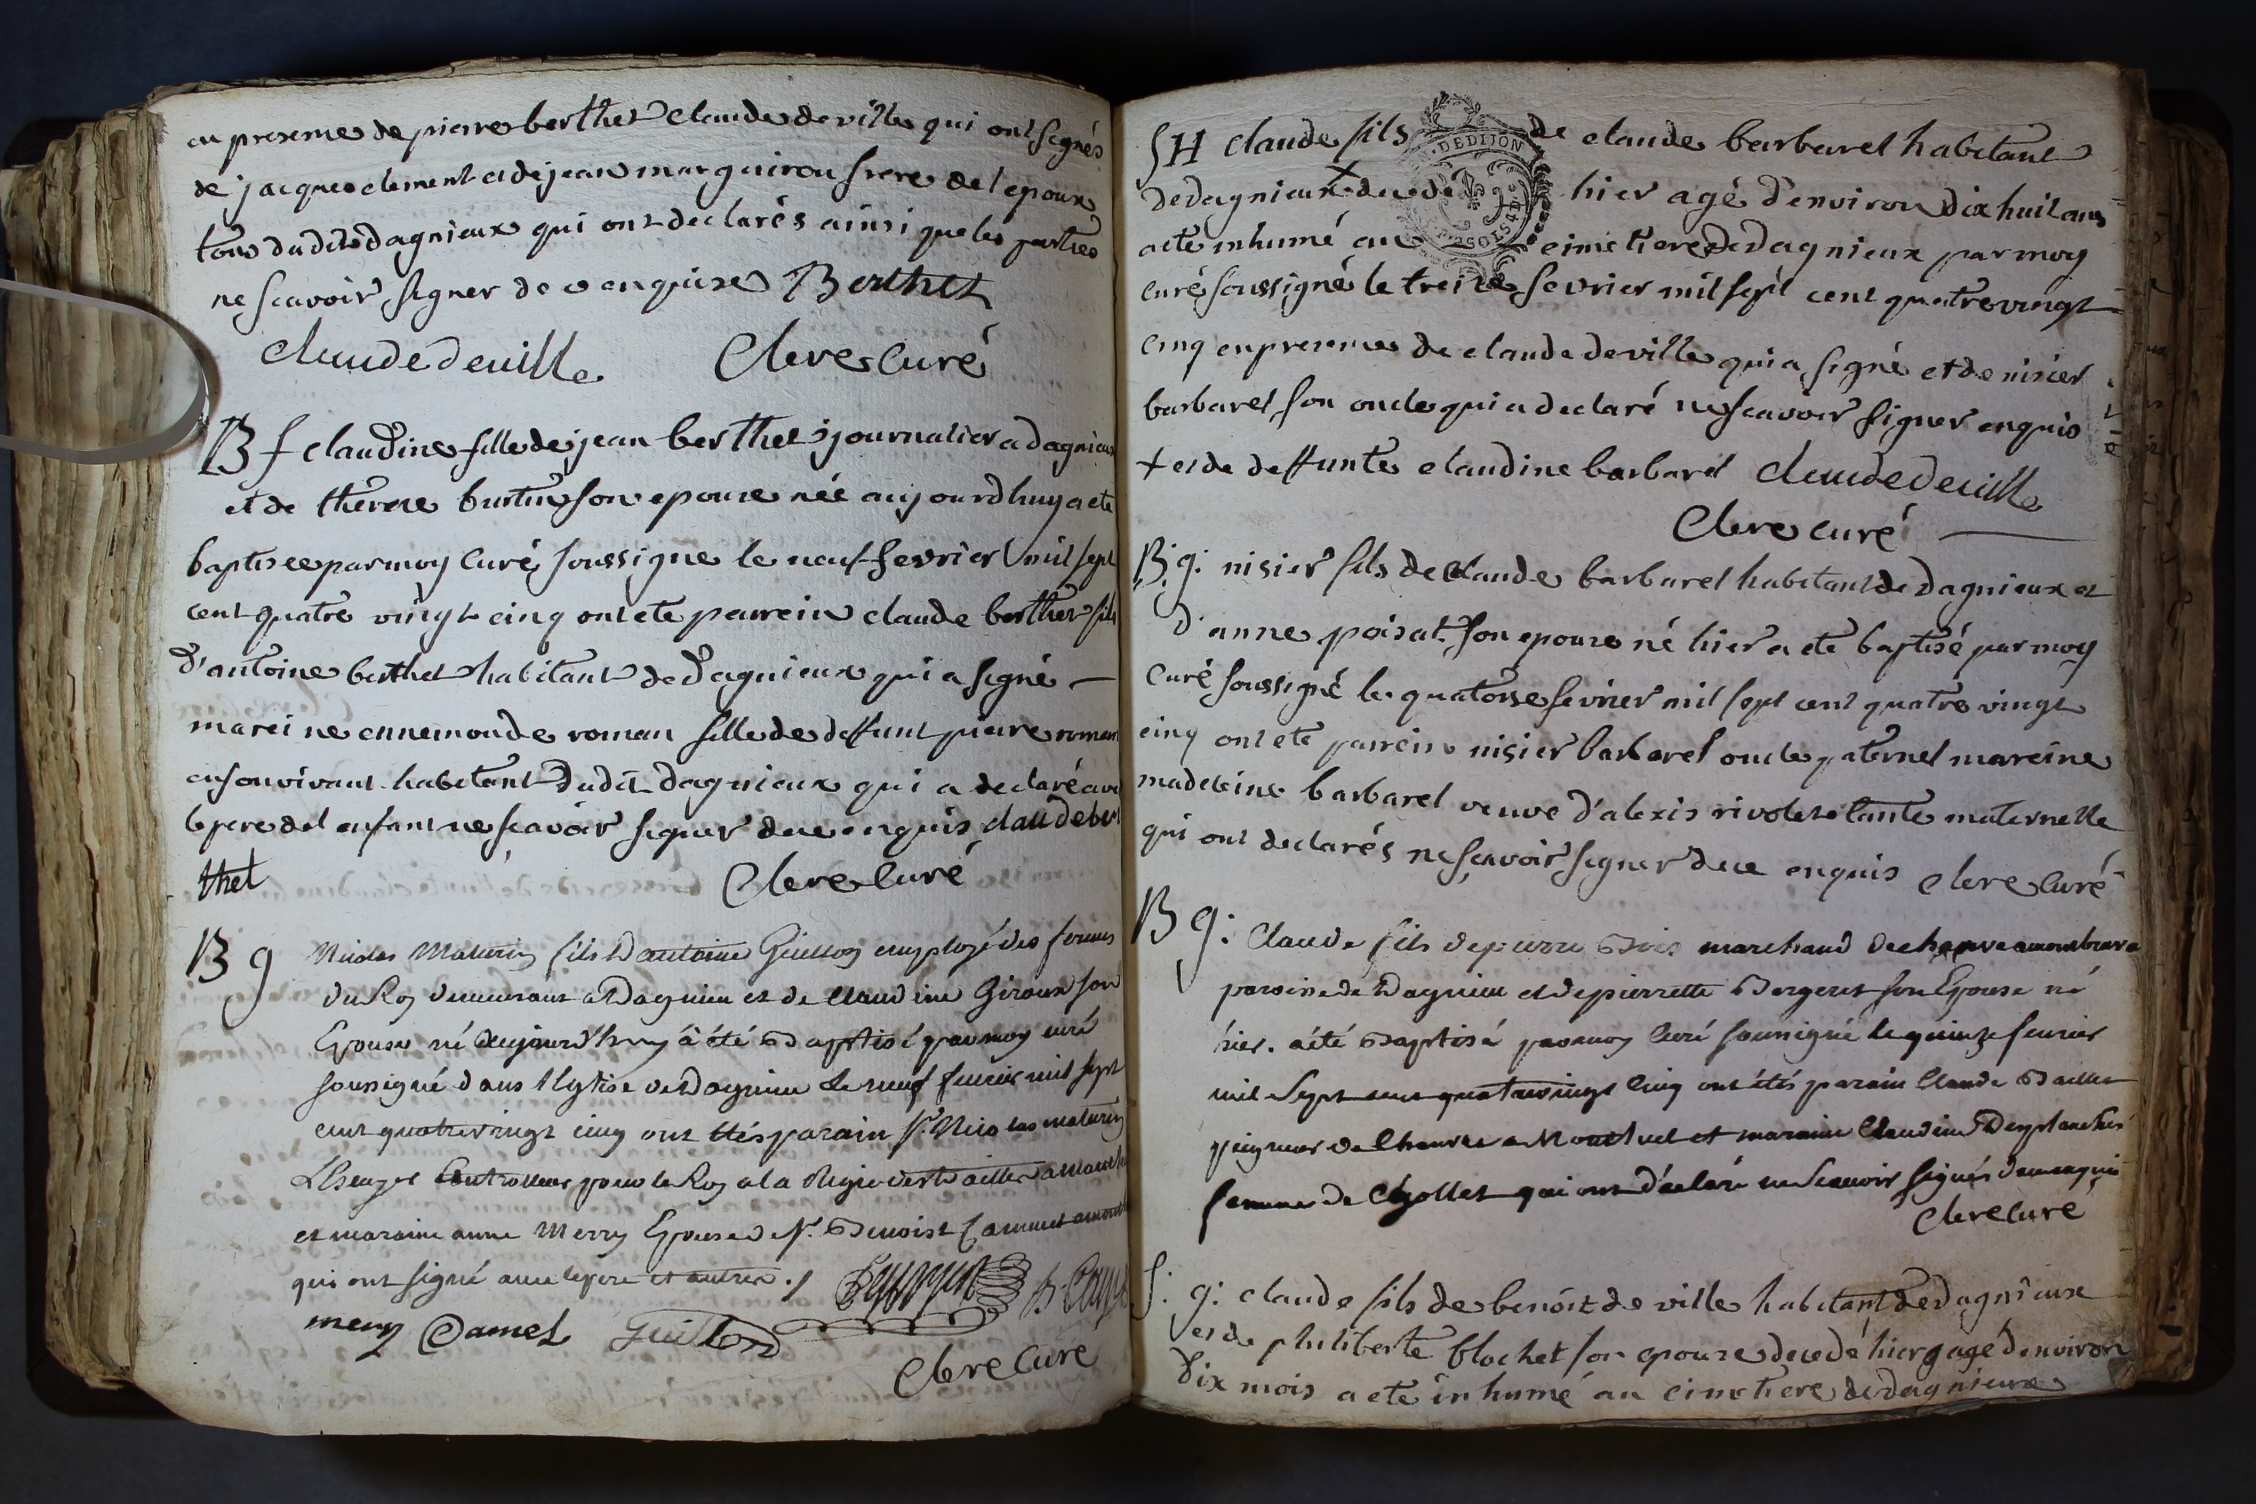 en presence de pierre berthet claude deville qui ont signés
de jacques clement et de jean marguiron frere de l epoux
tous dudit dagnieux qui ont declarés ainsi que les parties
ne scavoir signer de ce enquise Berthet
claude deville Clerc curé
B f claudine fille de jean berthet journalier a dagnieux
et de therese burtin son epouse née aujourdhuy a ete
baptisée par moy curé soussigne le neuf fevrier mil sept
cent quatre vingt cinq ont ete parrein claude berthet fils
d'antoine berthet habitant de dagnieux qui a signé
mareine ennemonde roman fille de deffunt pierre roman
en son vivant habitant dudit dagnieux qui a declaré avec
le pere de l enfant ne scavoir signer de ce enquis claude ber
thet Clerc curé
B g Nicolas Maturin fils d antoine Guillon employé des fermes
du Roy demeurant a Dagnieu et de Claudine Giroux son
Epouse né aujourd'huy à été Baptisé par moy curé
soussigné dans l'Eglise de Dagnieu Le neuf fevrier mil sept
cent quatrevingt cinq ont étés parain sr. Nicolas maturin
Controlleur pour le Roy a la Regie
et maraine anne Merry Epouse de sr. Benoist Camet
qui ont signé avec le pere et autres ./.
merry Camet Guillon
Clerc curé
SH claude fils de claude barbarel habitant
DE DIJON
de dagnieux x de hier agé d'environ dix huit ans
a ete inhumé au cimetiere de dagnieux par moy
curé soussigné le treize fevrier mil sept cent quatrevingt
cinq en presence de claude deville qui a signé et de nisier
barbarel son oncle qui a declaré ne scavoir signer enquis
+ et de deffunte claudine barbarel claude deville
Clerc curé
B. g. nisier fils de claude barbarel habitant de dagnieux et
d'anne poisat son epouse né hier a ete baptisé par moy
curé soussigné le quatorse fevrier mil sept cent quatre vingt
cinq ont ete parrein nisier barbarel oncle paternel mareine
madeleine barbarel veuve d'alexis rivolet tante maternelle
qui ont declarés ne scavoir signer de ce enquis Clerc curé
B g: Claude fils de pierre marchand de chanvre
paroisse de Dagnieu et de pierrette Bergeret son Epouse né
hier. a été Baptisé par moy curé soussigné le quinze fevrier
mil Sept cent quatrevingt Cinq ont étés parain Claude Baillet
peigneur de Chanvre a Montluel et maraine Claudine Desplanches
femme de Chollet qui ont déclaré ne Scavoir signés de ce enquis
Clerc curé
S. g: claude fils de benoit de ville habitant de dagnieux
et de philiberte blochet son epouse decedé hier agé d'environ
dix mois a ete inhumé au cimetiere de dagnieux